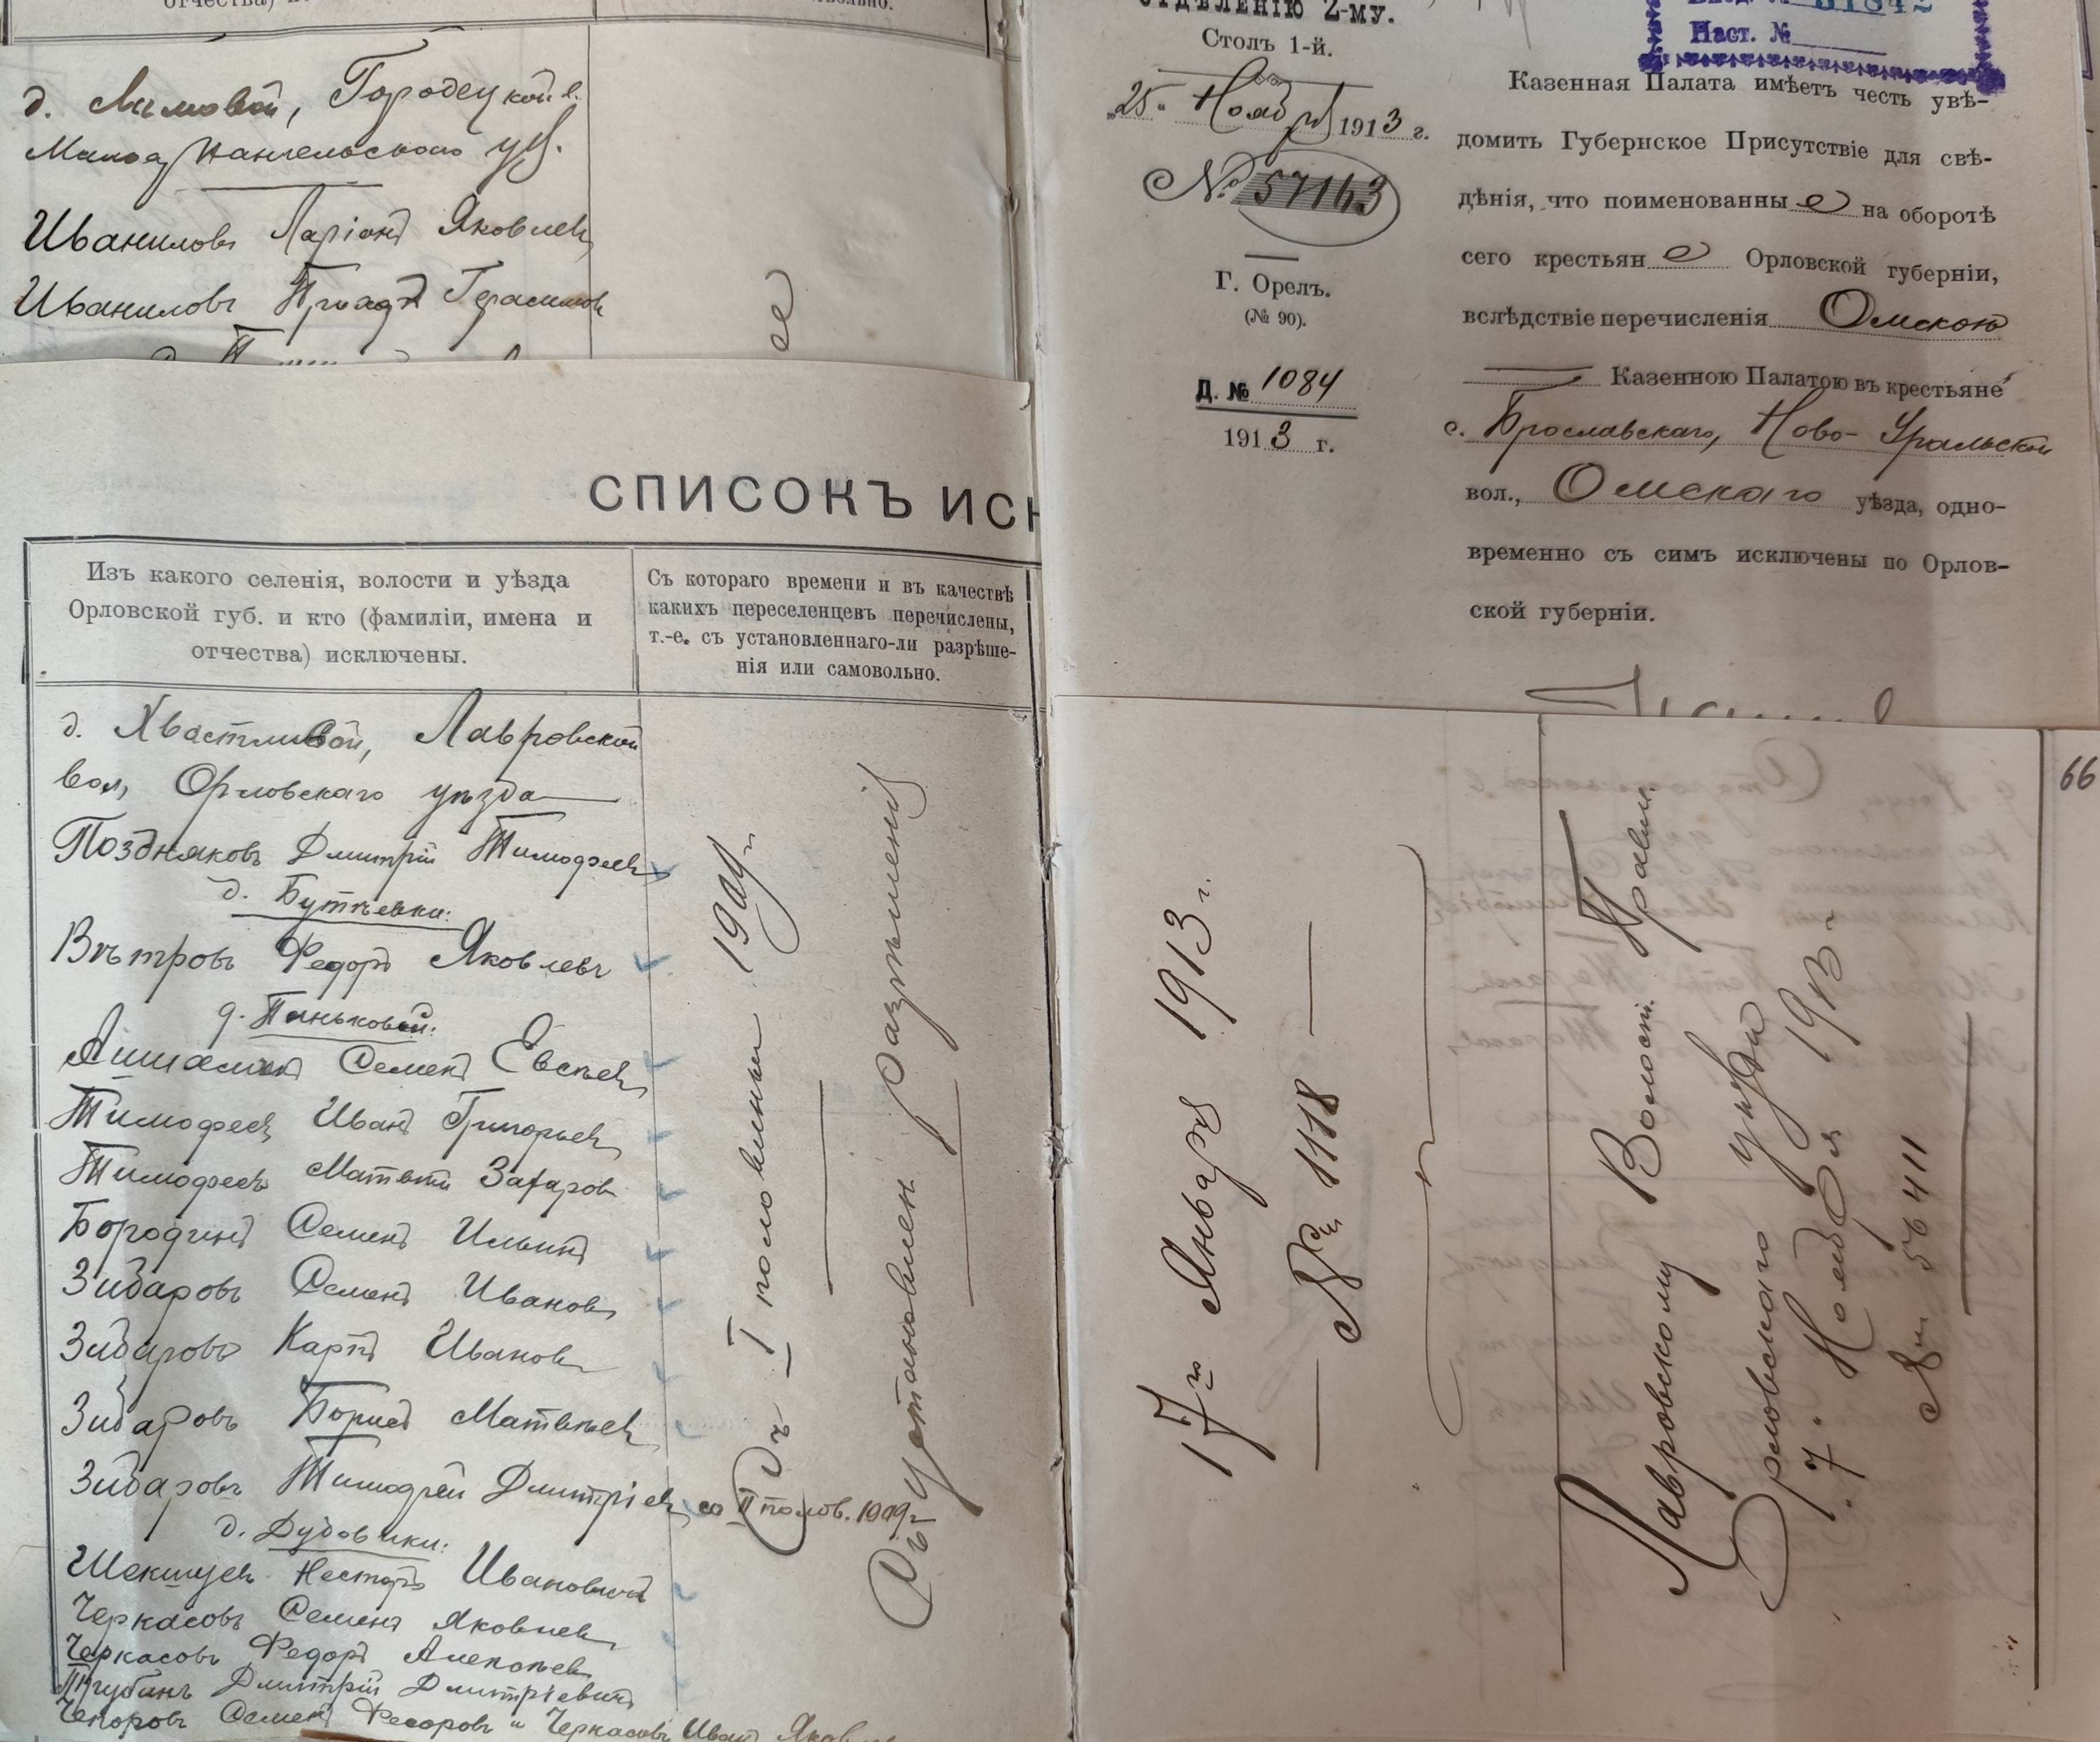 отчества)
д. Лымовой, Городецкой в.
Малоархангельскаго уѣ.
Иваниловъ Ларіонъ Яковлев
Иваниловъ Герасимовъ
ОТДѢЛЕНІЮ 2-МУ.
Столъ 1-й.
„25" Ноября 1913 г.
№ 57163
Г. Орелъ.
(№ 90).
Д. № 1084
1913 г.
31842
Наст. №
Казенная Палата имѣетъ честь увѣ-
домить Губернское Присутствіе для свѣ-
дѣнія, что поименованные на оборотѣ
сего крестьяне Орловской губерніи,
вслѣдствіе перечисленія Омскою
Казенною Палатою въ крестьяне
с. Ново-Уральской
вол., Омскаго уѣзда, одно-
временно съ симъ исключены по Орлов-
ской губерніи.
СПИСОКЪ ИСК
Изъ какого селенія, волости и уѣзда
Орловской губ. и кто (фамиліи, имена и
отчества) исключены.
Съ котораго времени и въ качествѣ
какихъ переселенцевъ перечислены,
т.-е. съ установленнаго-ли разрѣше-
нія или самовольно.
д. Хвастливой, Лавровской
вол, Орловскаго уѣзда
Поздняковъ Дмитрій Тимофеев
д. Бутѣевки:
Вѣтровъ Федоръ Яковлевъ
д. Паньковой:
Семенъ Евсѣев
Тимофеев Иванъ Григорьев
Тимофеевъ Матвѣй Захаров
Бородинъ Семенъ Ильинъ
Зибаровъ Семенъ Иванов
Зибаровъ Карпъ Иванов
Зибаровъ Борисъ Матвѣев
Зибаровъ Тимофей Дмитріев со II полов. 1909 г
д. Дубовики:
Шекшуев Несторъ Ивановичъ
Черкасовъ Семенъ Яковлев
Черкасовъ Федоръ Алексѣев
Трубинъ Дмитрій Дмитріевичъ
Семенъ Федоровъ и Черкасовъ Иванъ
Съ I половины 1909 г
Съ установлен разрѣшенія
17го Января 1913 г.
№ 1118
66
Лавровскому Волостн. Правлен.
Орловскаго уѣзда
„17" Ноября 1913 г
№ 56411